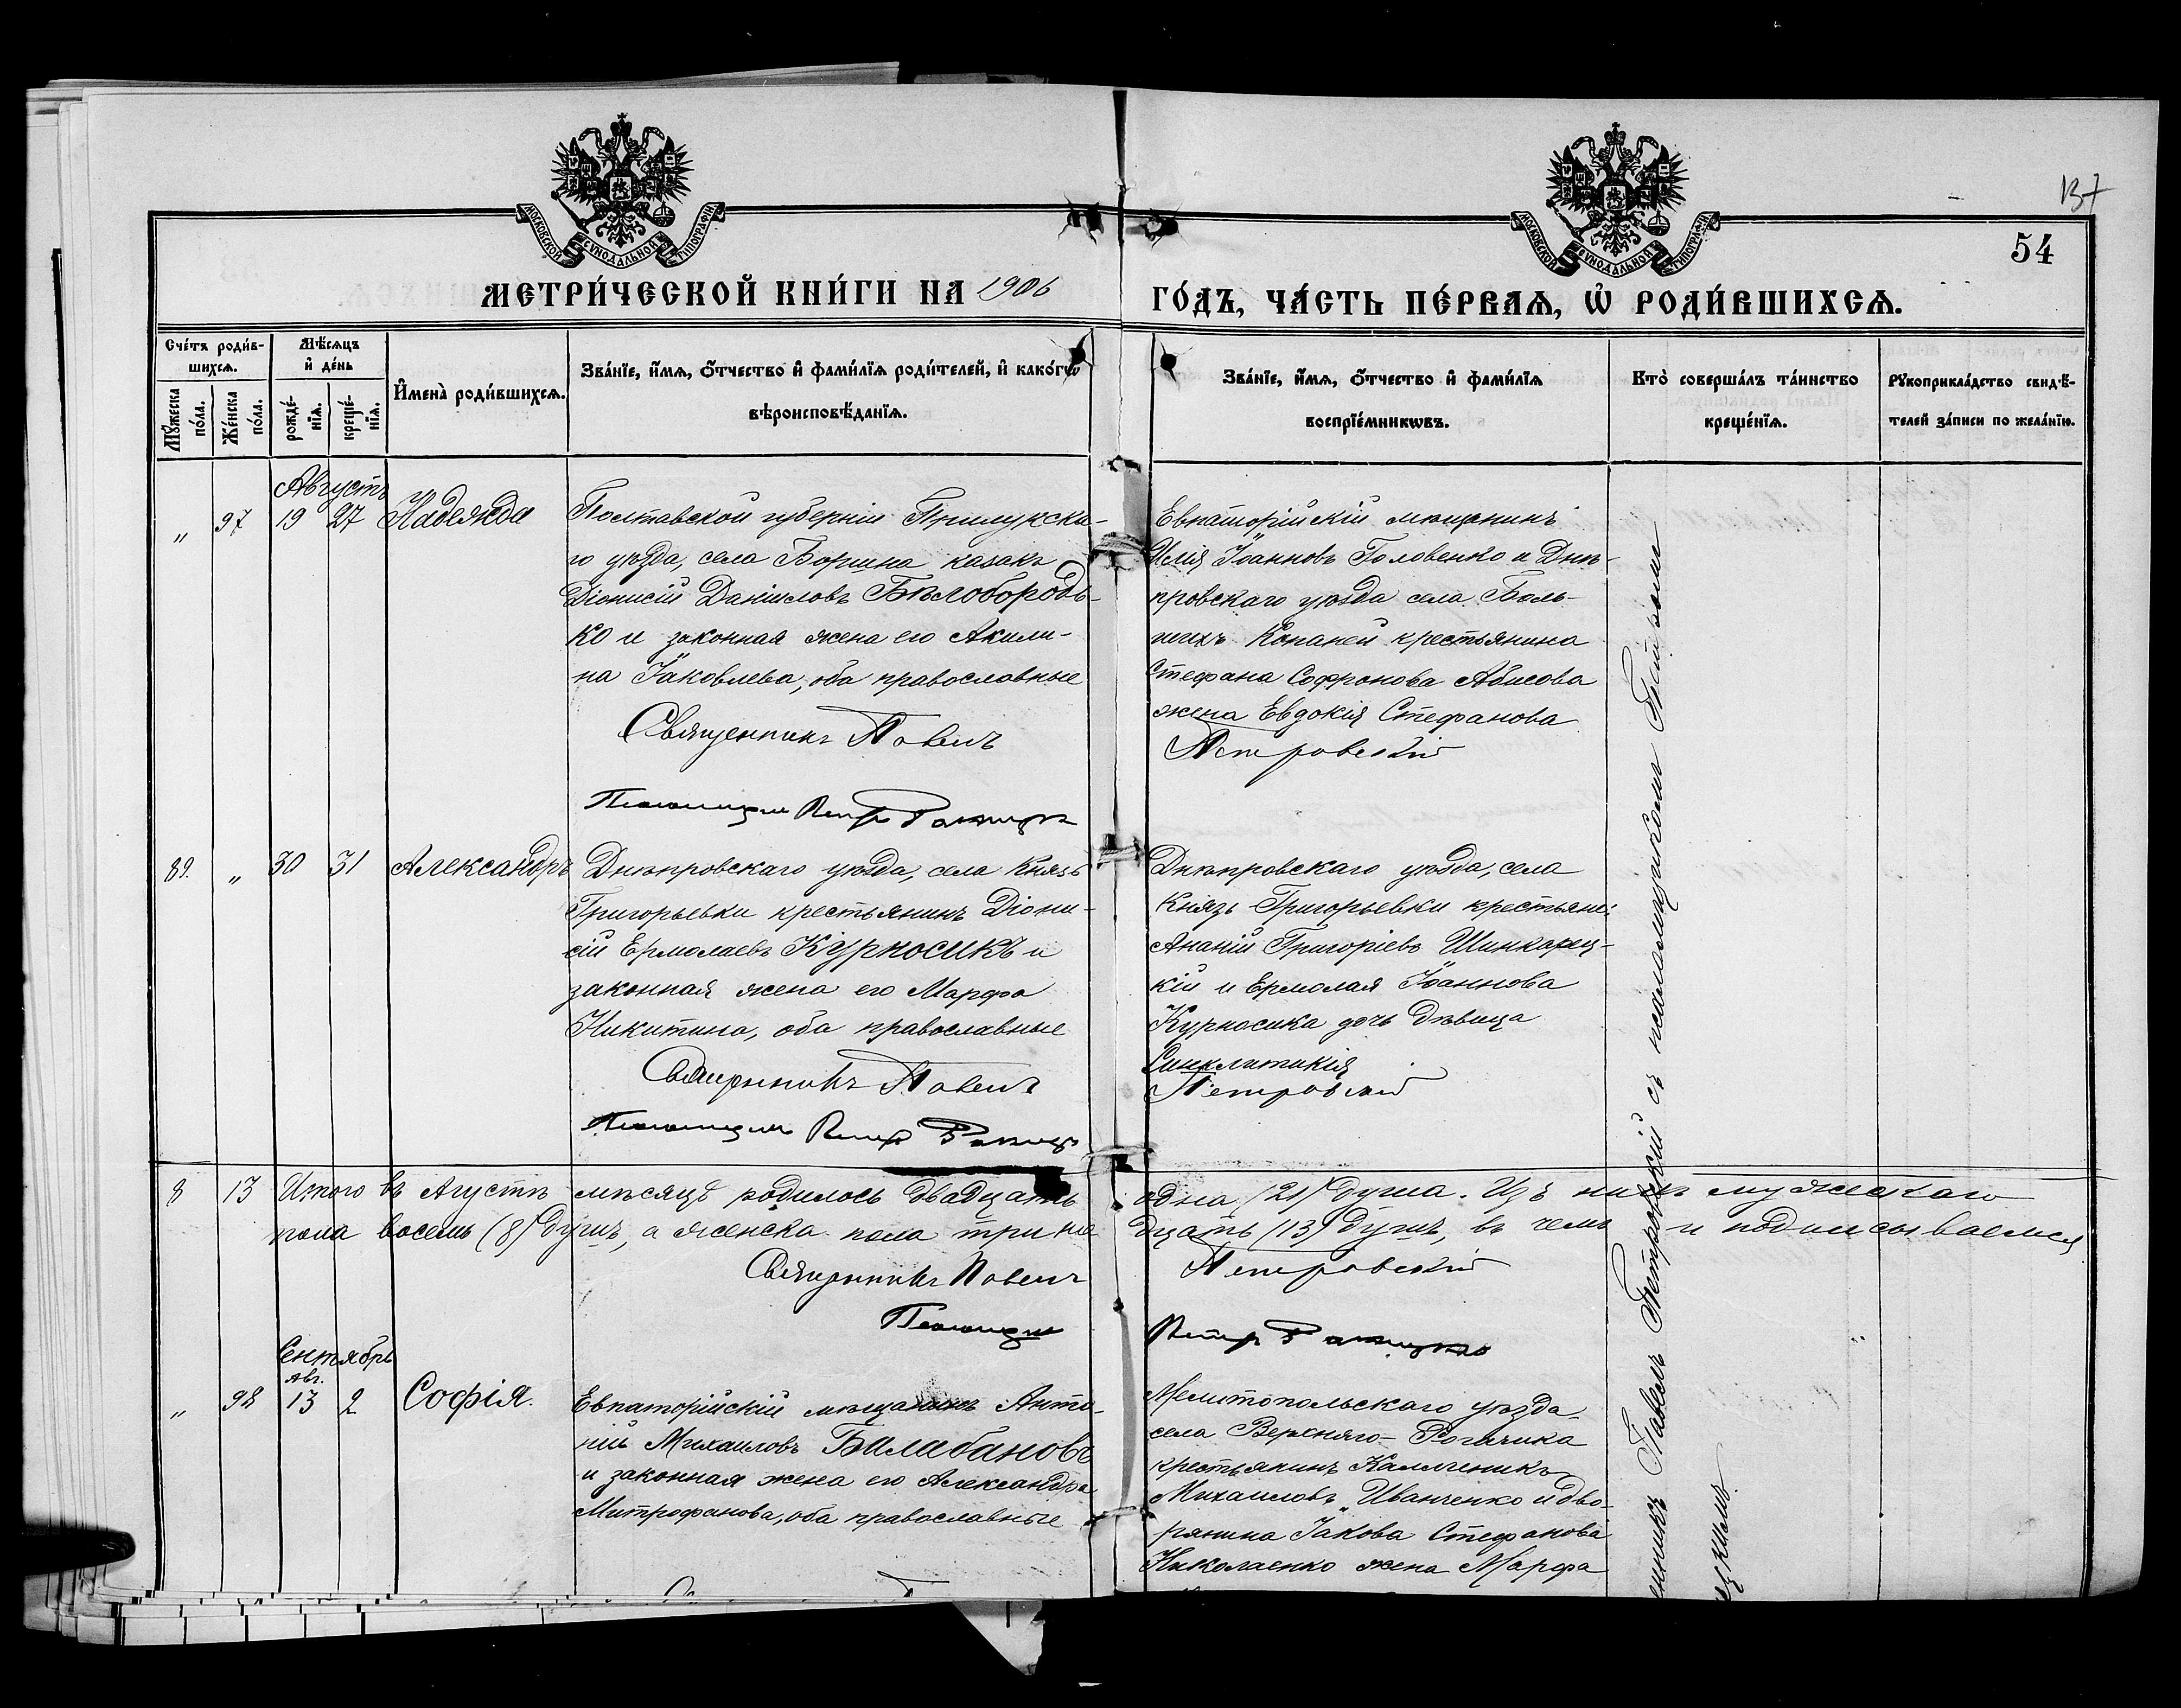 137
54
МОСКОВСКОЙ СѴНОДАЛЬНОЙ ТИПОГРАФІИ
МОСКОВСКОЙ СѴНОДАЛЬНОЙ ТИПОГРАФІИ
МЕТРИ́ЧЕСКОЙ КНИ́ГИ НА 1906
ГО́ДЪ, ЧА́СТЬ ПЕ́РВАѦ, Ѡ҆ РОДИ́ВШИХСѦ.
Сче́тъ роди́в-
шихсѧ.
Мꙋ́жеска по́ла.
Же́нска по́ла.
Мѣ́сѧцъ
и҆ де́нь
рожде́-
нїѧ.
креще́-
нїѧ.
И҆мена̀ роди́вшихсѧ.
Зва́нїе, и҆́мѧ, ѻ҆́тчество и҆ фами́лїѧ роди́телей, и҆ како́гѡ
вѣроисповѣ́данїѧ.
Зва́нїе, и҆́мѧ, ѻ҆́тчество и҆ фами́лїѧ
воспрїе́мникѡвъ.
Кто̀ соверша́лъ та́инство
креще́нїѧ.
Рꙋкоприкла́дство свидѣ́-
телей за́писи по жела́нїю.
Августъ
" 97 19 27 Надежда
Полтавской губерніи Прилукска-
го уѣзда, села Боршна казакъ
Діонисій Даніиловъ Бѣлобородь-
ко и законная жена его Акили-
на Іаковлева, оба православные
Священникъ Павелъ
Псаломщикъ Петръ
Евпаторійскій мѣщанинъ
Илія Іоанновъ Головенко и Днѣ-
провскаго уѣзда села Боль-
шихъ Копаней крестьянина
Стефана Софронова Абисова
жена Евдокія Стефанова
Петровскій
89. " 30 31 Александръ
Днѣпровскаго уѣзда, села Князь
Григорьевки крестьянинъ Діони-
сій Ермолаевъ Курносикъ и
законная жена его Марфа
Никитина, оба православные
Священникъ Павелъ
Псаломщикъ Петръ
Днѣпровскаго уѣзда, села
Князь-Григорьевки крестьяне:
Ананій Григоріевъ Шинкарец-
кій и Ермолая Іоаннова
Курносика дочь дѣвица
Синклитикія
Петровскій
8 13 Итого въ Агустѣ мѣсяцѣ родилось двадцать одна (21) душа. Изъ нихъ мужескаго
пола восемь (8) душъ, а женска пола тринадцать (13) душъ, въ чемъ и подписываемся
Священникъ Павелъ Петровскій
Псаломщикъ Петръ
Сентябрь
Авг.
" 98 13 2 Софія.
Евпаторійскій мѣщанинъ Анто-
ній Михаиловъ Балабановъ
и законная жена его Александра
Митрофанова, оба православные
Мелитопольскаго уѣзда
села Верхняго-Рогачика
крестьянинъ Каллиникъ
Михаиловъ Иванченко и дво-
рянина Іакова Стефанова
Николаенко жена Марфа
енникъ Павелъ Петровскій съ псаломщикомъ